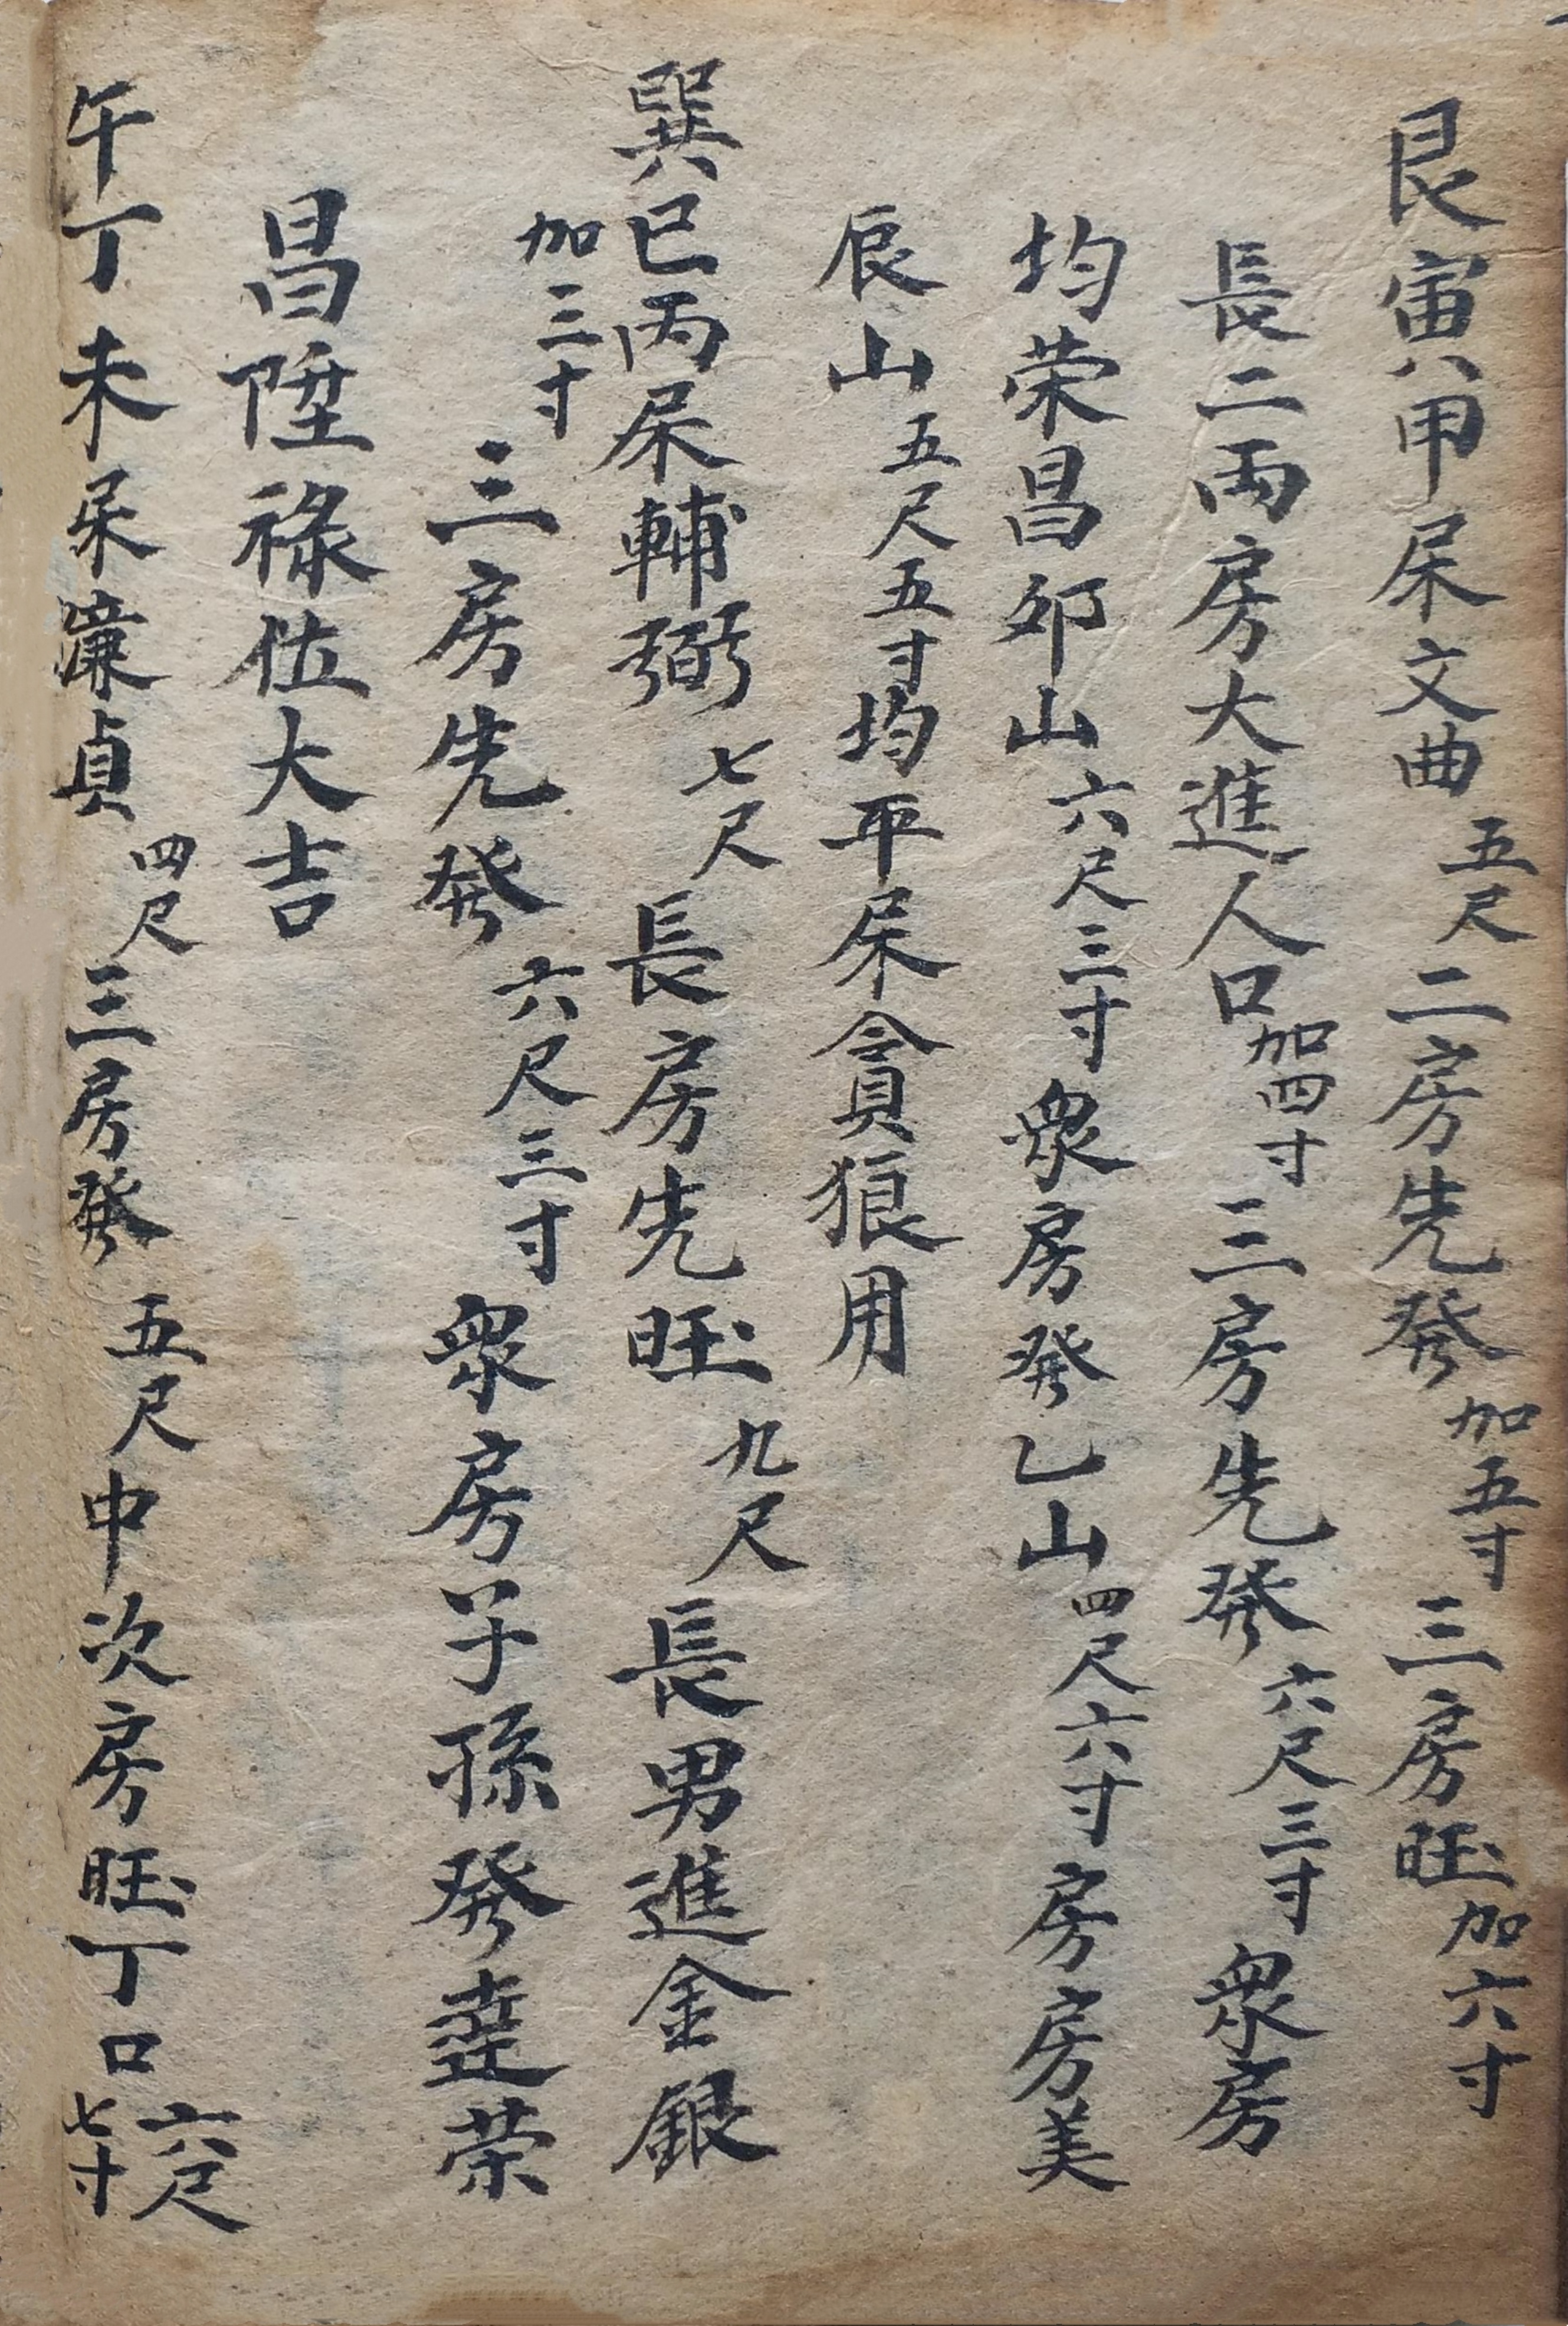 艮寅甲屎文曲五尺二房先發加五寸三房旺加六寸
長二両房大進人口加四寸三房先發六尺三寸衆房
均荣昌夘山六尺三寸衆房發乙山四尺六寸房房美
辰山五尺五寸均平屎貪狼用
巽巳丙屎輔弼七尺長房先旺九尺長男進金銀
加三寸三房先發六尺三寸衆房子孫發達荣
昌陞禄位大吉
午丁未屎濂貞四尺三房發五尺中次房旺丁口六尺七寸